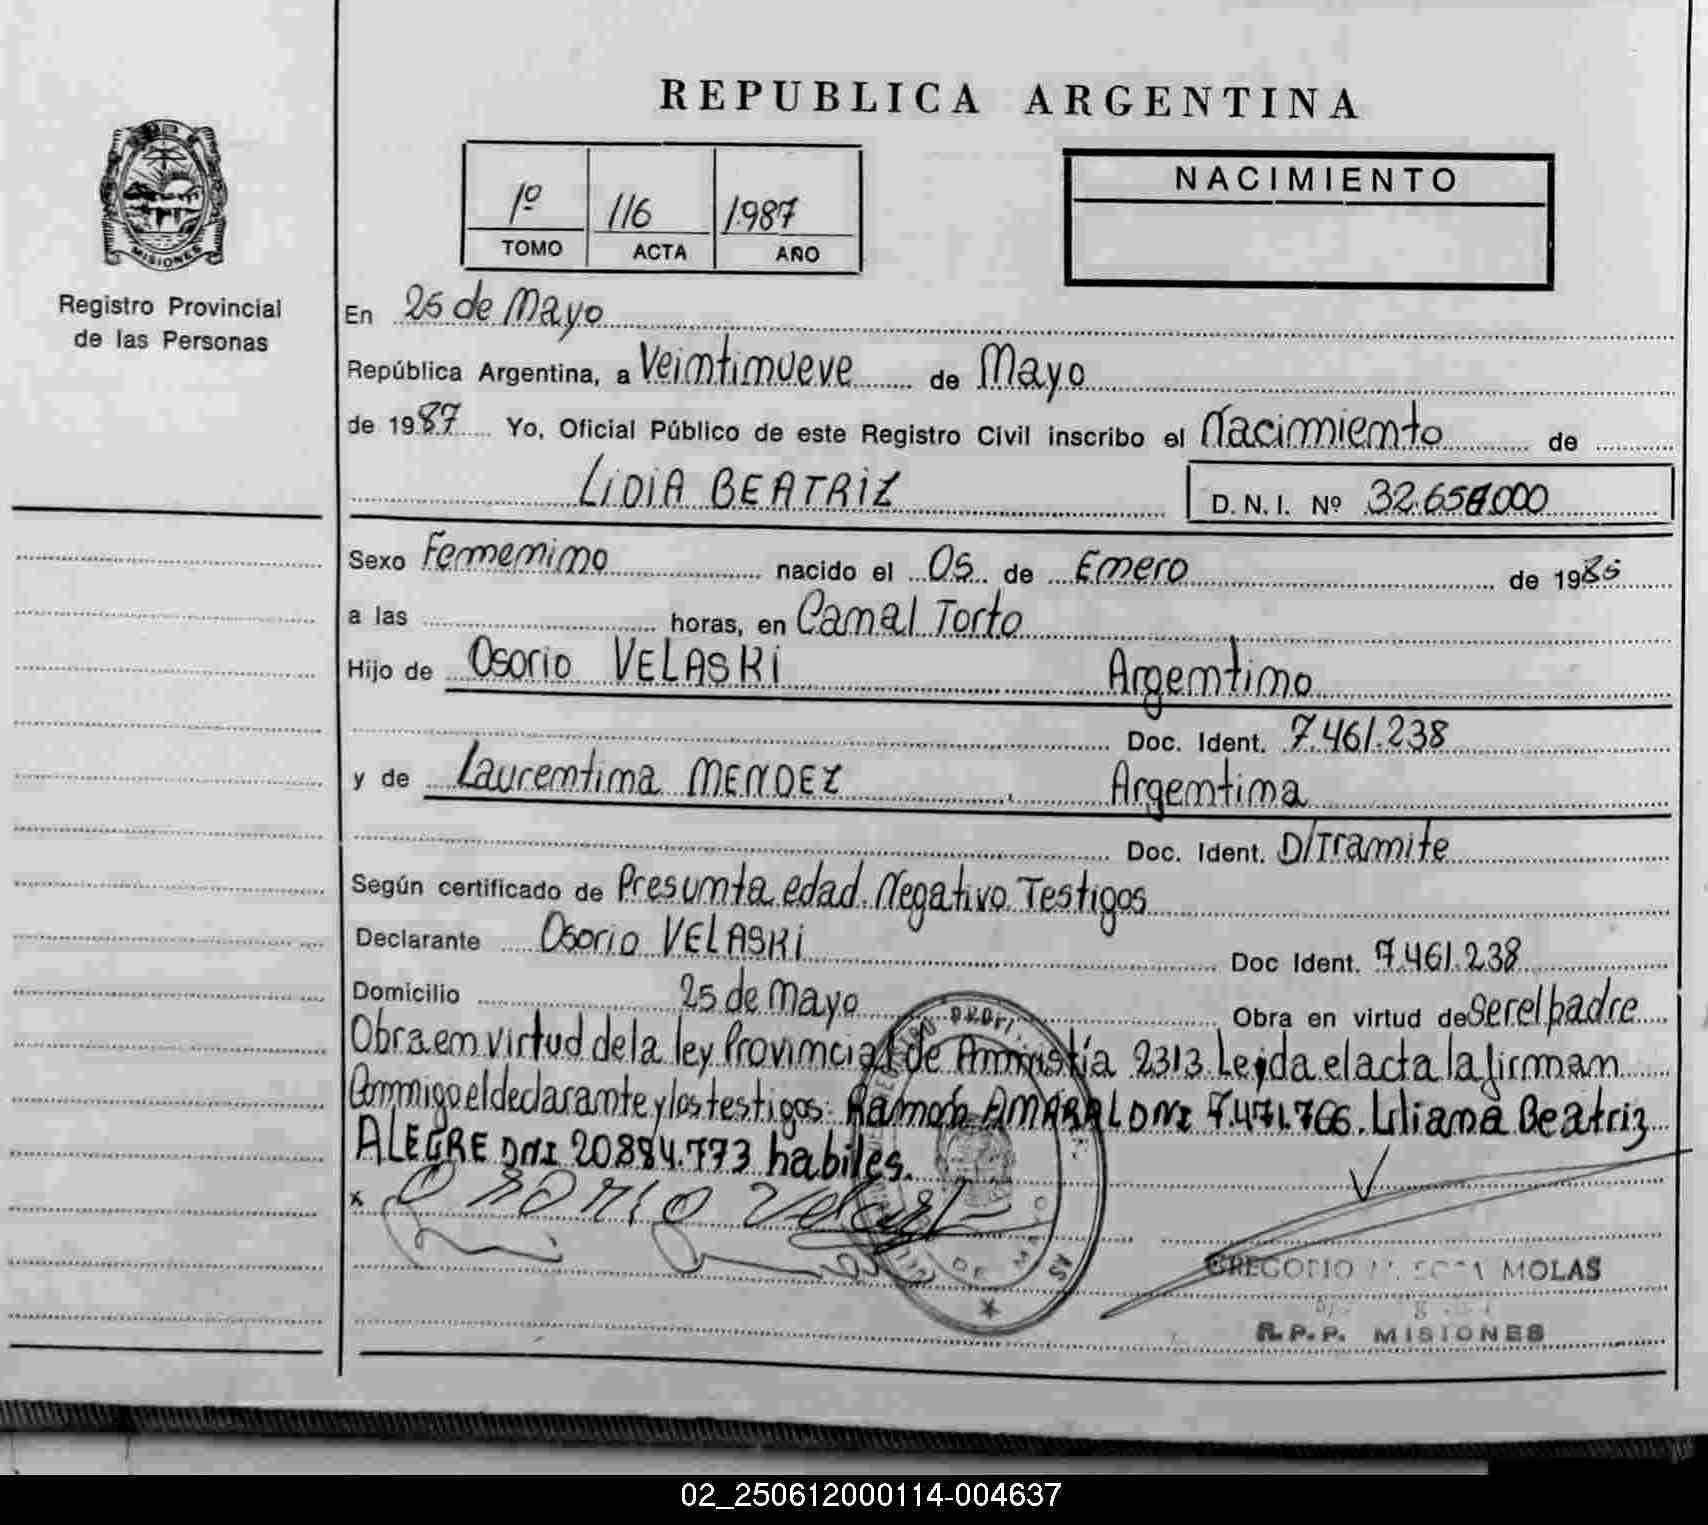 REPUBLICA ARGENTINA
1º 116 1987
TOMO ACTA AÑO
NACIMIENTO
MISIONES
Registro Provincial
de las Personas
En 25 de Mayo
República Argentina, a Veintinueve de Mayo
de 1987 Yo, Oficial Público de este Registro Civil inscribo el Nacimiento de
LIDIA BEATRIZ D.N.I. Nº
Sexo Femenino nacido el 05 de Enero de 1985
a las horas, en Canal Torto
Hijo de Osorio VELASKI Argentino
Doc. Ident. 7.461.238
y de Laurentina MENDEZ Argentina
Doc. Ident. D/Tramite
Según certificado de Presunta edad. Negativo. Testigos
Declarante Osorio VELASKI Doc Ident. 7.461.238
Domicilio 25 de Mayo Obra en virtud de Ser el padre
Obra en virtud de la ley Provincial de Aministía 2313. Leida el acta la firman
Conmigo el declarante y los testigos: Ramón AMARAL DNI 7.471.766. Liliana Beatriz
ALEGRE DNI 20.884.773 habiles.
GREGORIO MOLAS
R.P.P. MISIONES
02_250612000114-004637